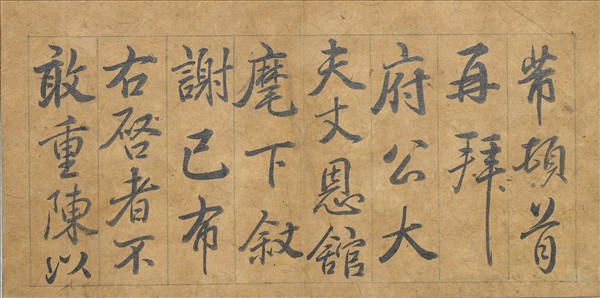 芾頓首
再拜
府公大
夫丈恩館
麾下叙
謝已布
右啓者不
敢重陳以